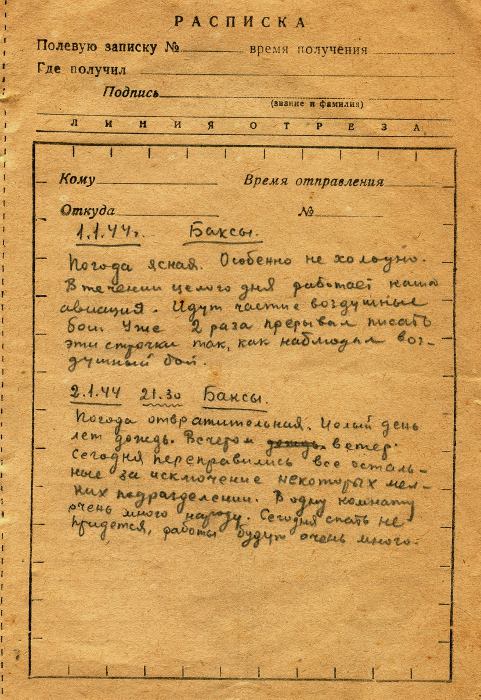 РАСПИСКА
Полевую записку № время получения
Где получил
Подпись
(звание и фамилия)
ЛИНИЯ ОТРЕЗА
Кому Время отправления
Откуда №
1.1.44г. Баксы.
Погода ясная. Особенно не холодно.
В течении целого дня работает наша
авиация. Идут частые воздушные
бои. Уже 2 раза прерывал писать
эти строчки так, как наблюдал воз-
душный бой.
2.1.44 21.30 Баксы.
Погода отвратительная. Целый день
лет дождь. Вечером дождь ветер.
Сегодня переправились все осталь-
ные за исключение некоторых мел-
ких подразделении. В одну комнату
очень много народу. Сегодня спать не
придется, работы будут очень много.